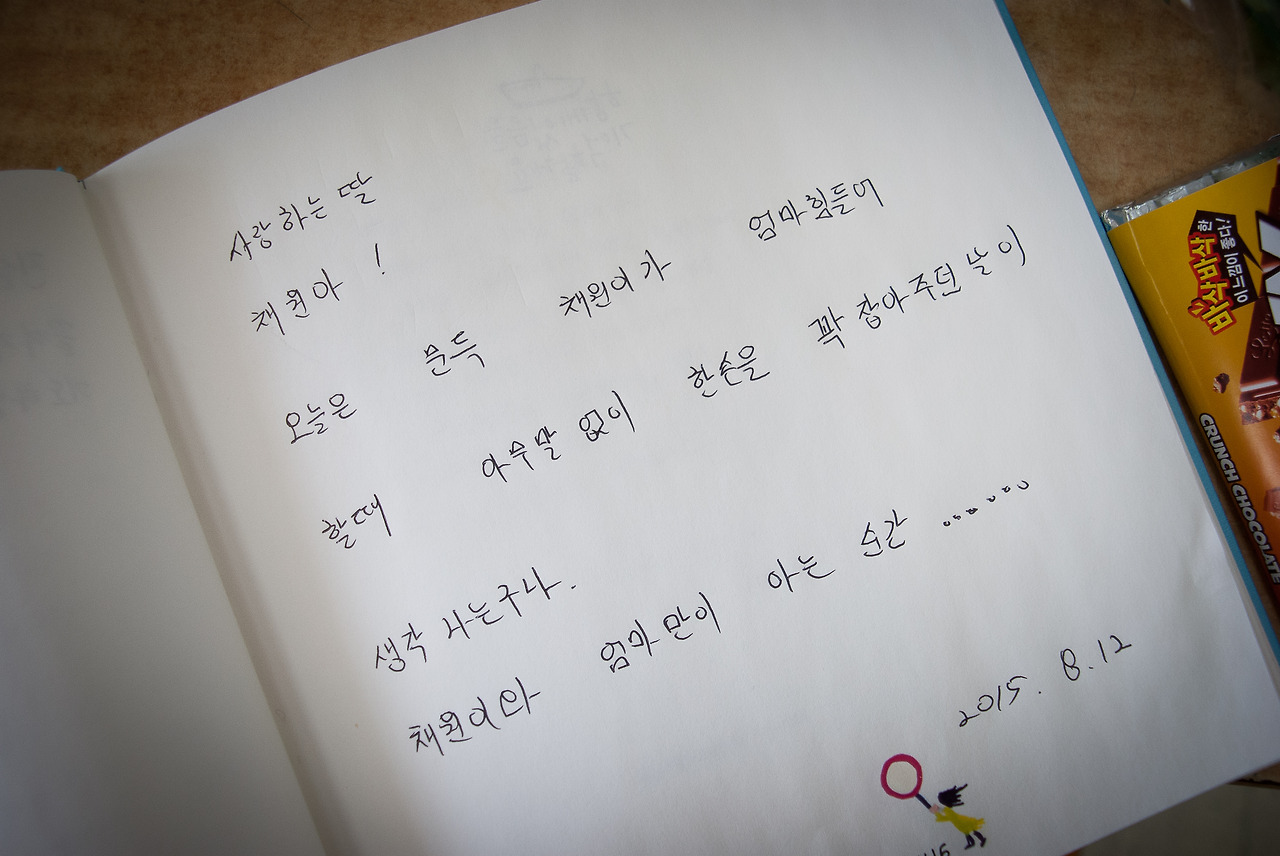 사랑하는 딸
채원아 !
오늘은 문득 채원이가 엄마힘들어
할때 아무말 없이 한손을 꽉 잡아주던 날이
생각 나는구나.
채원이와 엄마만이 아는 순간 .......
2015. 8. 12
바삭바삭한
이 느낌이 좋다!
CRUNCH CHOCOLATE